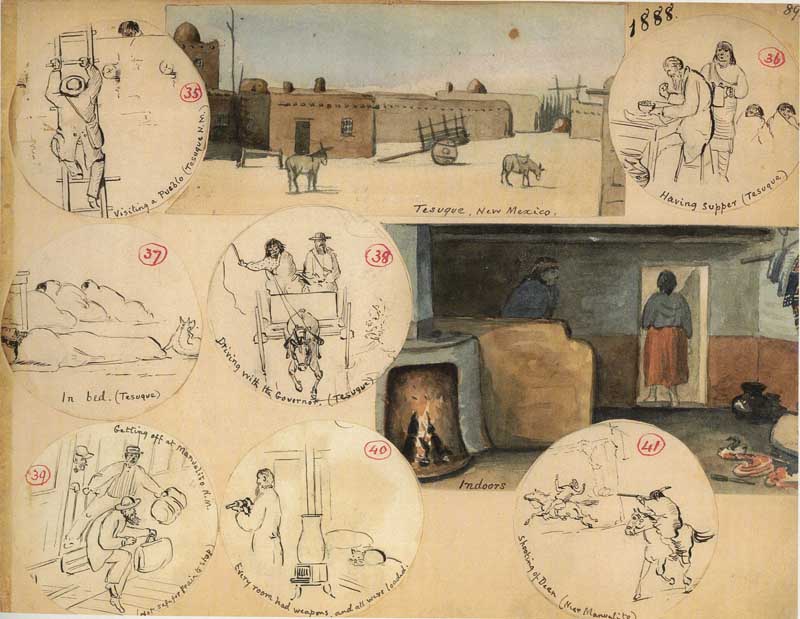 1888.
89
35
Visiting a Pueblo (Tesuque N.M.)
Tesuque, New Mexico.
36
Having supper (Tesuque)
37
In bed. (Tesuque)
38
Driving with the Governor. (Tesuque)
Indoors
39
Getting off at Manuelito N.M.
(Not safe for train to stop)
40
Every room had weapons, and all were loaded!
41
Shooting of Deer (Near Manuelito)